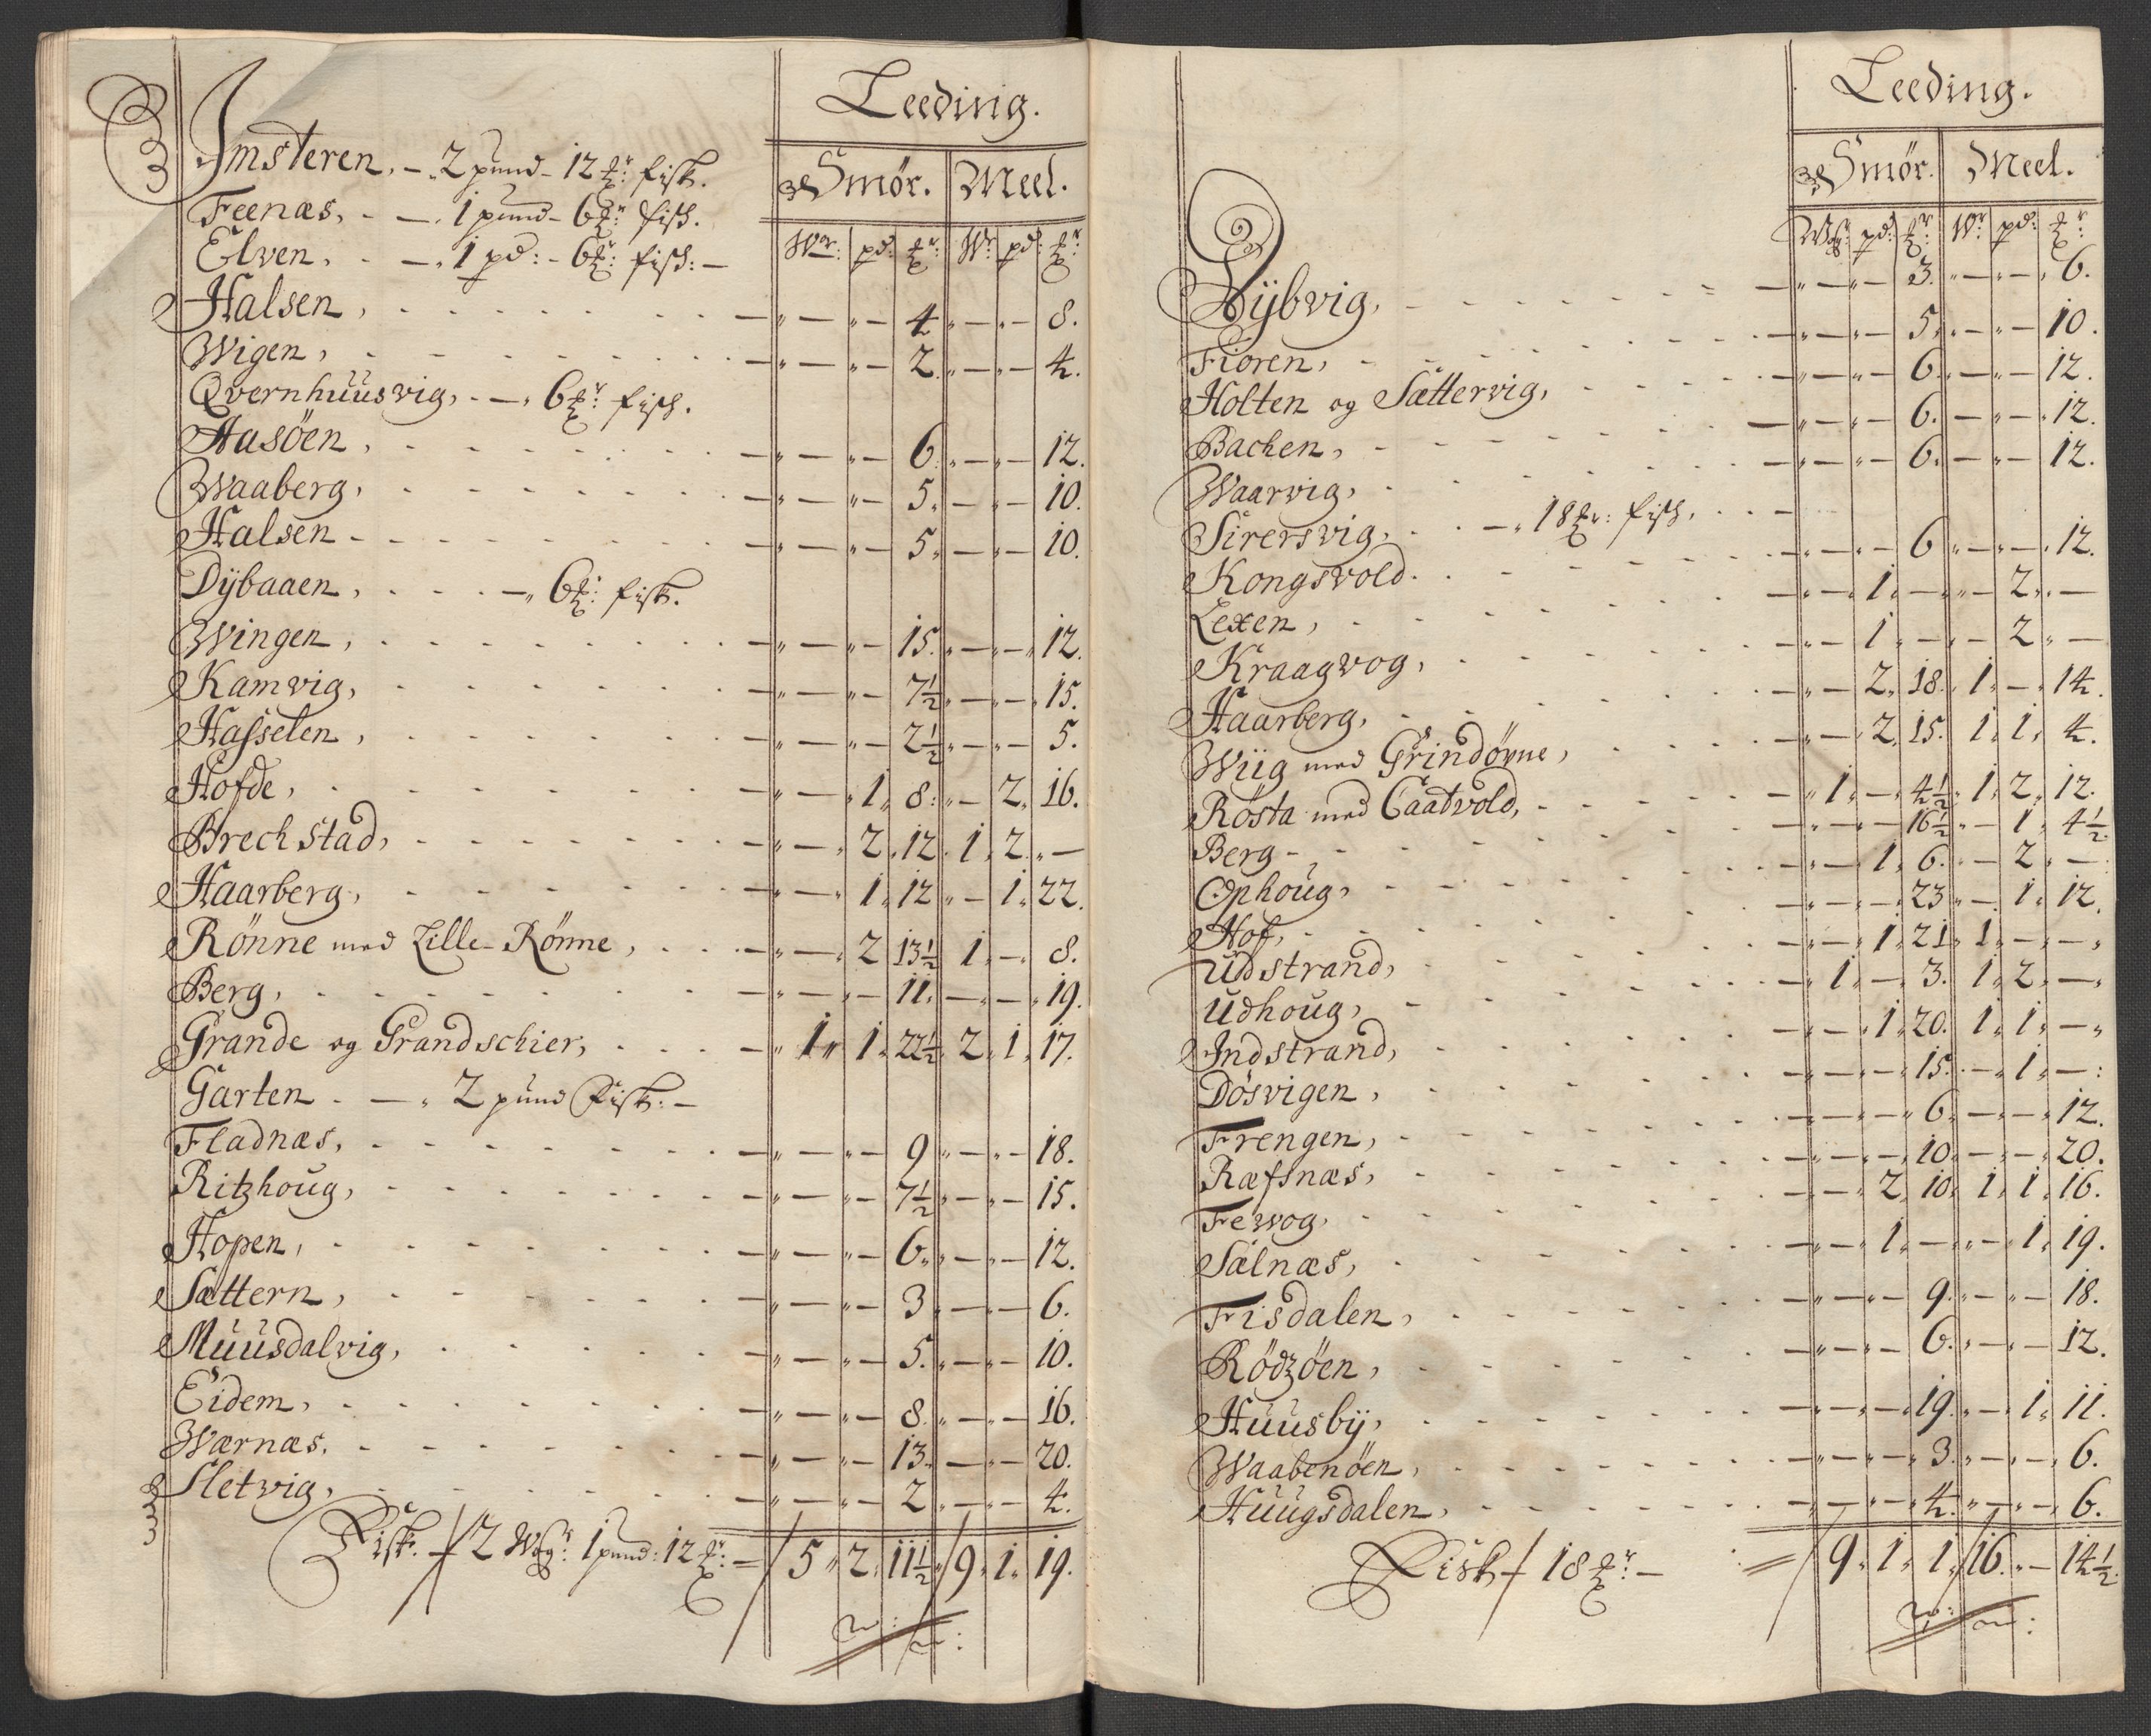 Leeding.
Smör. Meel.
Wr: pd: ℔r: Wr: pd: ℔r:
Imsteren, - 2 pund - 12 ℔r: fisk.
Feenæs, - 1 pund - 6 ℔r: fisk.
Elven, - 1 pd: - 6 ℔r: fisk: -
Halsen, 4 8.
Wigen, 2. 4.
Qvernhuusvig, - 6 ℔r: fisk.
Aasöen, 6. 12.
Waaberg, 5. 10.
Halsen - 5. 10.
Dÿbaaen, - 6 ℔r: fisk.
Wingen, 15. 12.
Kamvig, 7½ 15.
Hasselen, 2½ 5.
Hofde, 1. 8. 2. 16.
Brechstad, 2. 12. 1. 2. -
Haarberg, 1. 12 1. 22.
Rönne med Lille-Rönne, 2 13½ 1. - 8.
Berg, 11. 19.
Grande og Grandschier, 1. 1. 22½ 2. 1. 17.
Garten - 2 pund Fisk. -
Fladnæs, 9 18.
Ritzhoug, 7½ 15.
Hopen, 6. 12.
Sættern, 3. 6.
Muusdalvig, 5. 10.
Eidem, 8. 16.
Wærnæs. 13. 20.
Sletvig, 2 4.
Fisk. 2 Wogr: 1 pund: 12 ℔r: - 5 2. 11½ 9. 1. 19.
Leeding.
Smör. Meel.
Wog: pd: ℔r: Wr: pd: ℔r:
Dÿbvig, 3. 6.
Fioren, 5. 10.
Holten og Sættervig, 6. 12.
Bachen, 6. 12.
Waarvig, 6. 12.
Sirersvig, - 18 ℔r: fisk.
Kongsvold. 6 12.
Lexen, 1. - 2. -
Kraagvog, 1. - 2. -
Haarberg, 2. 18. 1. - 14.
Wiig med Grindörne, 2. 15. 1. 1. 4.
Rösta med Caatvold, 1. - 4½ 1. 2. 12.
Berg - 16½ 1. 4½
Ophoug, 1. 6. 2. -
Hof, 23 1. 12.
Udstrand, 1. 21. 1. - -
Udhoug, 1. - 3. 1. 2. -
Indstrand, 1. 20. 1. 1. -
Dösvigen, 15. 1. -
Frengen, 6. 12.
Ræfsnæs, 10. 20.
Fewog, 2. 10. 1. 1. 16.
Sælnæs, 1. - 1. 19.
Frisdalen, 9. 18.
Rödzöen, 6. 12.
Huusbÿ, 19. 1. 11.
Waabenöen, 3. 6.
Huugsdalen, 4. 6.
Fisk - 18 ℔r: - 9. 1. 1. 16. - 14½